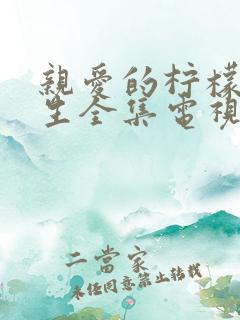 親愛的柠檬
生全集電視
二當家
未経同意禁止转载